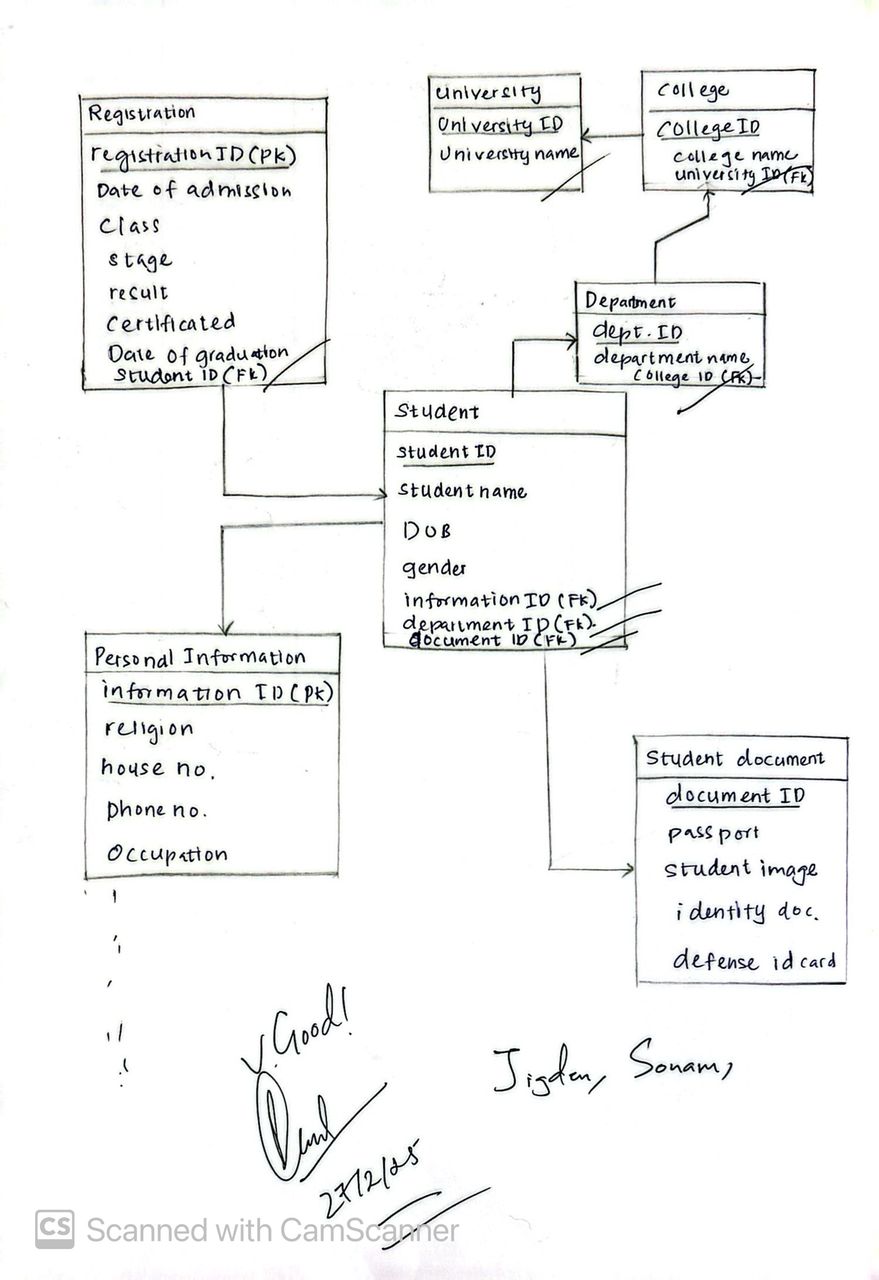 Registration
registration ID (PK)
Date of admission
Class
stage
result
Certificated
Date of graduation
Student ID (FK)
University
University ID
University name
College
College ID
college name
university ID (FK)
Department
dept. ID
department name
College ID (FK)
Student
student ID
student name
DOB
gender
information ID (FK)
department ID (FK).
document ID (FK)
Personal Information
information ID (PK)
religion
house no.
phone no.
Occupation
Student document
document ID
passport
student image
identity doc.
defense id card
V. Good!
27/2/25
Jigden, Sonam,
CS Scanned with CamScanner